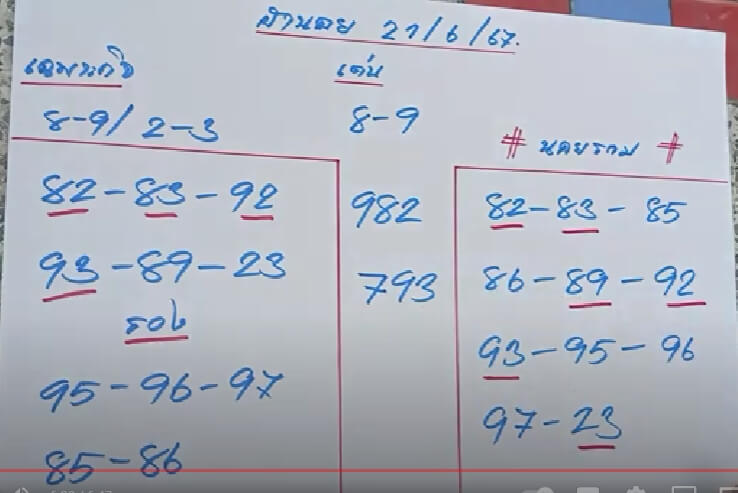 ฮานอย 21/6/67.
เฉพาะกิจ
8-9/2-3
82-83-92
93-89-23
รอง
95-96-97
85-86
เด่น
8-9
982
793
# นอยรวม #
82-83-85
86-89-92
93-95-96
97-23